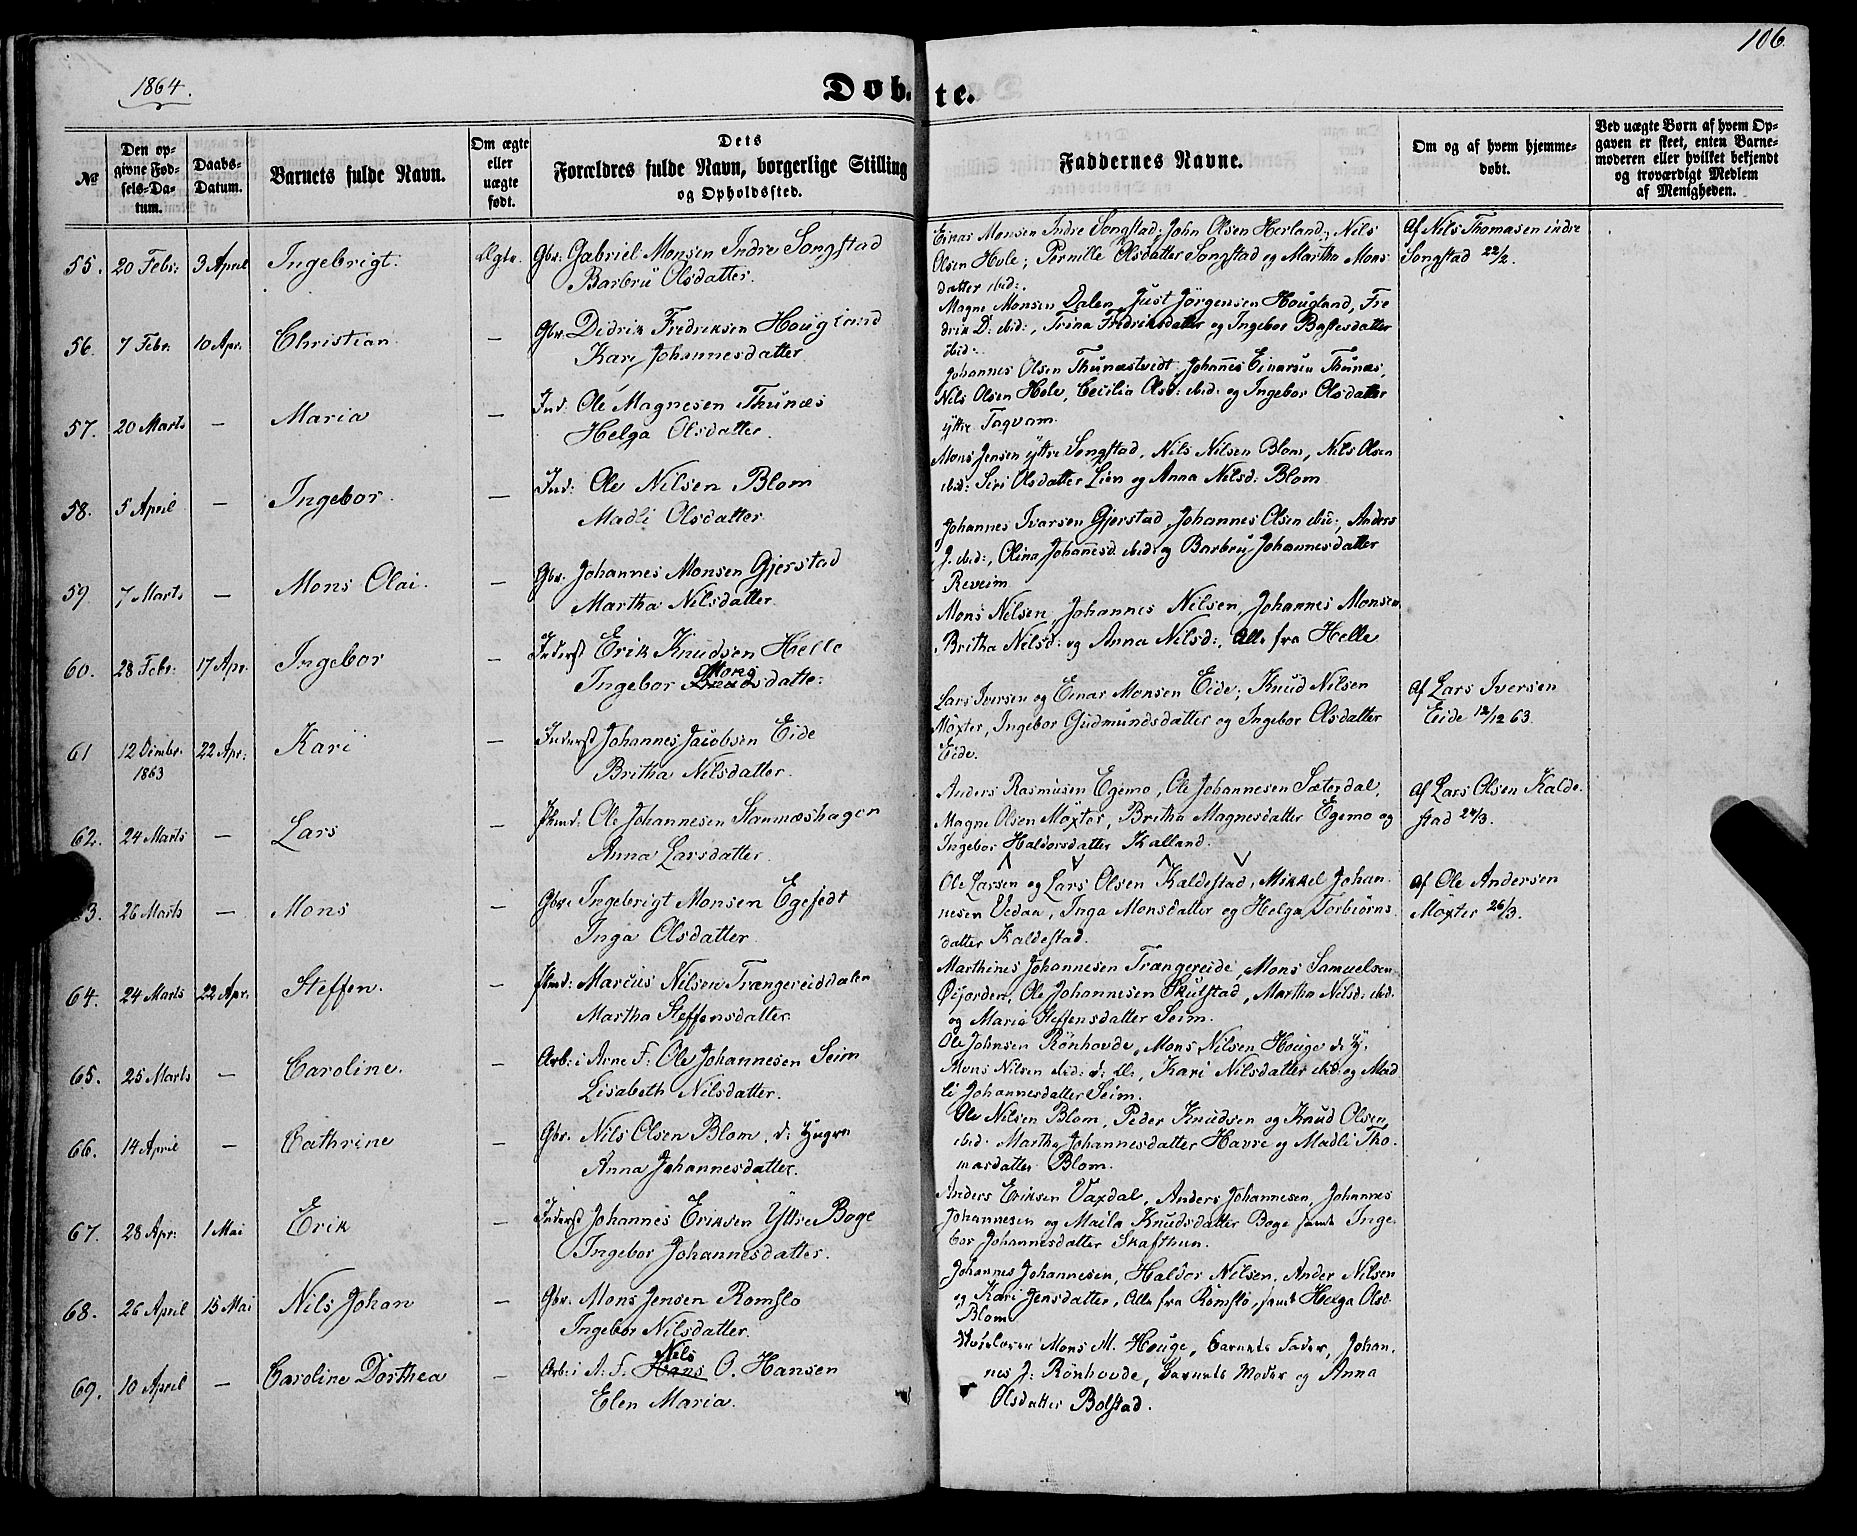 106.
1864.
Døbte.
No
Den opgivne Fødsels-Datum.
Daabs-Datum.
Barnets fulde Navn.
Om ægte eller uægte født.
Dets Forældres fulde Navn, borgerlige Stilling og Opholdssted.
Faddernes Navne.
Om og af hvem hjemmedøbt.
Ved uægte Børn af hvem Opgaven er skeet, enten Barnemoderen eller hvilket bekjendt og troværdigt Medlem af Menigheden.
55. 20 Febr: 3 April Ingebrigt. Ægte. Gbr. Gabriel Monsen Indre Songstad
Barbru Olsdatter.
Einar Monsen Indre Songstad, John Olsen Herland, Nils
Olsen Hole; Pernille Olsdatter Songstad og Martha Mons
datter ibid:.
Af Nils Thomasen indre
Songstad 22/2.
56. 7 Febr. 10 Apr. Christian. — Gbr. Didrik Fredriksen Hougland
Kari Johannesdatter
Magne Monsen Dalen, Just Jørgensen Hougland, Fre
drik D: ibid:, Trina Fredriksdatter og Ingebor
ibid:.
57. 20 Marts — Maria — Ind: Ole Magnesen Thunæs
Helga Olsdatter.
Johannes Olsen Thunæstvedt, Johans Einarsen Thunæs,
Nils Olsen Hole, Cecilia Olsd: ibid: og Ingebor Olsdatter
yttre Fagvam.
58. 5 April — Ingebor. — Ind: Ole Nilsen Blom
Madli Olsdatter.
Mons Jensen yttre Songstad, Nils Nilsen Blom, Nils Olsen
ibid: Siri Olsdatter Lien og Anna Nilsd: Blom
59. 7 Marts — Mons Olai. — Gbr. Johannes Monsen Gjerstad
Martha Nilsdatter.
Johannes Ivarsen Gjerstad, Johannes Olsen ibid:, Anders
J. ibid:, Olina Johanesd. ibid: og Barbru Johannesdatter
Reveim
60. 28 Febr: 17 Apr. Ingebor — Inderst Erik Knudsen Helle
Ingebor Knudsdatte:
Mons Nilsen, Johannes Nilsen, Johannes Monsen,
Britha Nilsd: og Anna Nilsd:, Alle fra Helle
61 12 Dembr. 1863 22 Apr: Kari — Inderst Johannes Jacobsen Eide
Britha Nilsdatter.
Lars Iversen og Einar Monsen Eide; Knud Nilsen
Møxter, Ingebor Gudmundsdatter og Ingebor Olsdatter
Eide.
Af Lars Iversen
Eide 12/12 63.
62. 24 Marts — Lars — Pkmd: Ole Johannesen Stamnæshagen
Anna Larsdatter.
Anders Rasmusen Egemo, Ole Johannesen Sæterdal,
Magne Olsen Møxter, Britha Magnesdatter Egemo og
Ingebor Haldorsdatter Kalland.
Af Lars Olsen Kalde
stad 24/3.
3. 26 Marts — Mons — Gbr: Ingebrigt Monsen Egefedt
Inga Olsdatter.
Ole Larsen og Lars Olsen Kaldestad, Mikkel Johan
nesen Vedaa, Inga Monsdatter og Helga Torbiørns
datter Kaldestad.
Af Ole Andersen
Møxter 26/3.
64. 24 Marts 22 Apr: Steffen. — Pkmd: Marcus Nilsen Trængereiddalen
Martha Steffensdatter.
Marthines Johannesen Trængereide, Mons Samuelsen
Øijorden, Ole Johannesen Skulstad, Martha Nilsd: ibid.
og Maria Steffensdatter Seim.
65. 25 Marts — Caroline. — Arb: i Arne F: Ole Johannesen Seim
Lisabeth Nilsdatter.
Ole Johnsen Rønhovde, Mons Nilsen Houge d: Y.
Mons Nilsen ibid: d: Æ:, Kari Nilsdatter ibid: og Mad
li Johannesdatter Seim.
66. 14 April — Cathrine — Gbr. Nils Olsen Blom, d: Yngre
Anna Johannesdatter.
Ole Nilsen Blom, Peder Knudsen og Knud Olsen,
ibid: Martha Johannesdatter Havre og Madli Tho
masdatter Blom.
67. 28 Apr: 1 Mai Erik — Inderst Johannes Eriksen Yttre Boge
Ingebor Johannesdatter.
Anders Eriksen Vaxdal, Anders Johannesen, Johannes
Johannesen og Maila Knudsdatter Boge samt Inge
bor Johannesdatter Skafthun.
68. 26 April 15 Mai Nils Johan — Gbr. Mons Jensen Romslo
Ingebor Nilsdatter.
Johannes Johannesen, Haldor Nilsen, Ander Nilsen
og Kari Jensdatter, Alle fra Romslo, samt Helga Olsd
Blom
69. 10 April — Caroline Dorthea — Arb: i A: F. Hans Nils O. Hansen
Elen Maria.
Mons M. Houge, barnets Fader, Johan.
nes J: Rønhovde, barnets Moder og Anna
Olsdatter Bolstad.